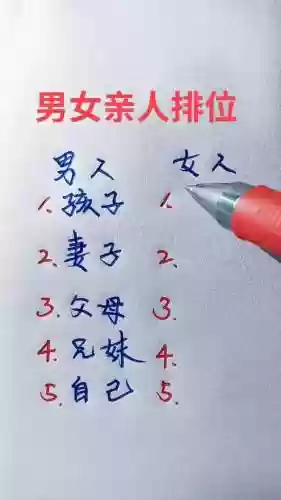 男女亲人排位
男人 女人
1.孩子 1.
2.妻子 2.
3.父母 3.
4.兄妹 4.
5.自己 5.